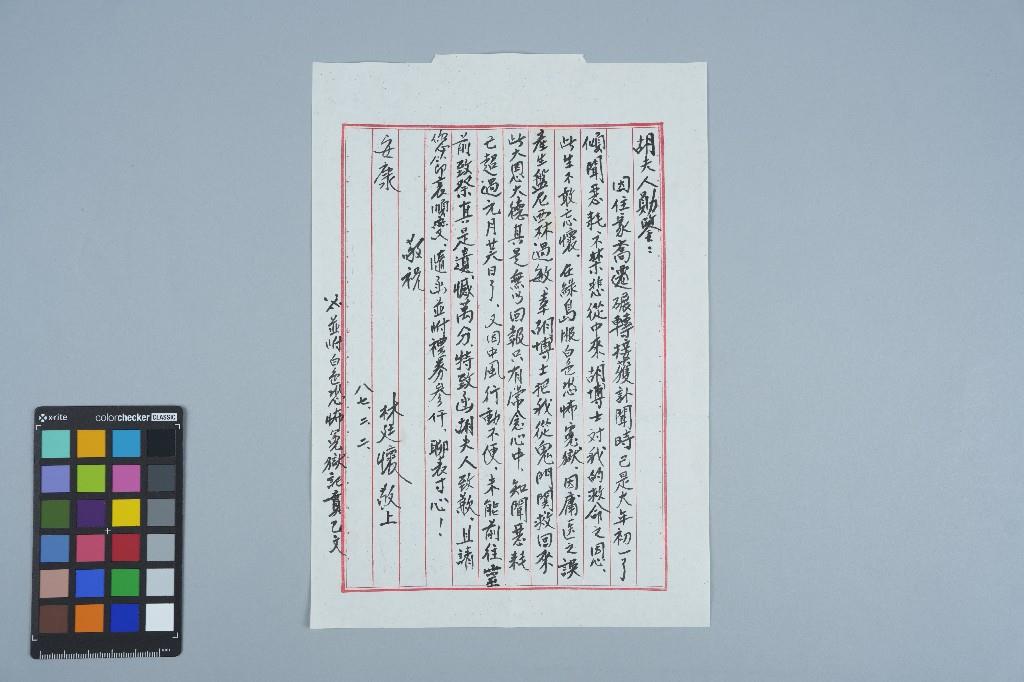 胡夫人勛鑒：
因住家喬遷輾轉接獲訃聞時已是大年初一了
傾聞惡耗不禁悲從中來、胡博士對我的救命之恩、
此生不敢忘懷、在綠島服白色恐怖冤獄、因庸医之誤
產生盤尼西林過敏、幸胡博士把我從鬼門関救回來
此大恩大德真是無以回報只有常念心中、知聞惡耗
已超過元月廿六日了、又因中風行動不便、未能前往靈
前致祭真是遺憾萬分、特致函胡夫人致歉、且請
您節哀順變、隨函並附禮券參仟、聊表寸心！
敬祝
安康
林廷懷 敬上
八七、二、二、
並附白色恐怖冤獄記實乙文
x-rite
colorchecker CLASSIC